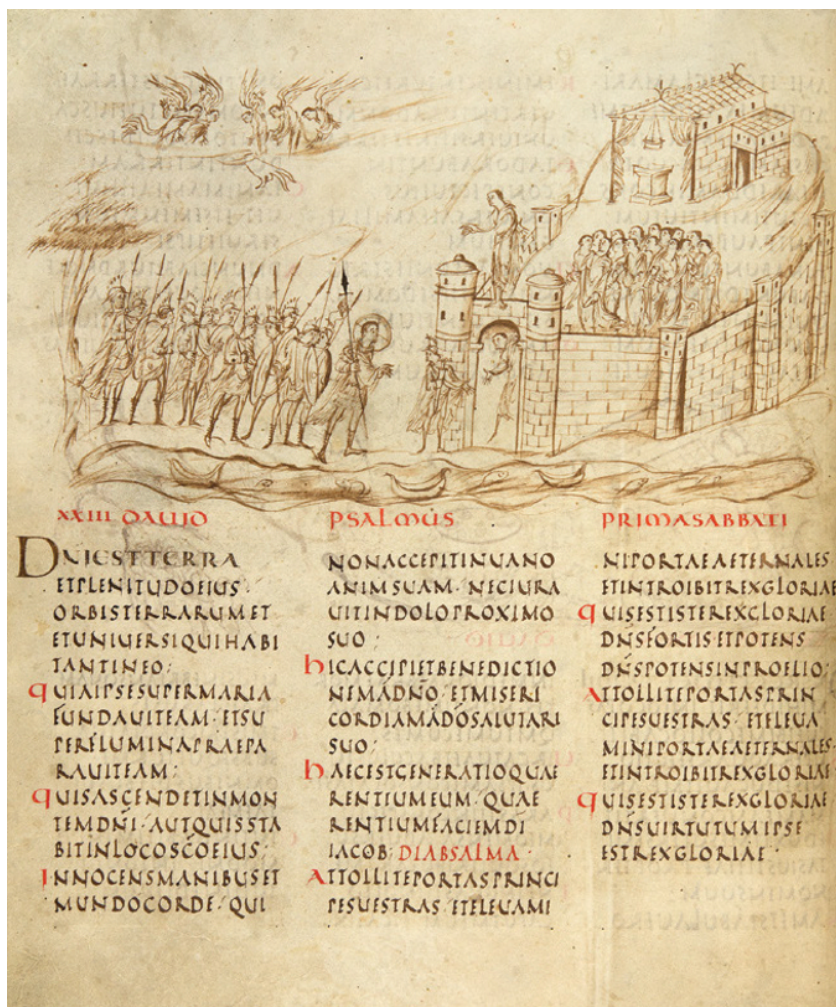 XXIII DAUID PSALMUS PRIMASABBATI
DNIESTTERRA
ETPLENITUDOEIUS·
ORBISTERRARUMET
ETUNIUERSIQUIHABI
TANTINEO;
QUIAIPSESUPERMARIA
FUNDAUITEAM· ETSU
PERFLUMINAPRAEPA
RAUITEAM;
QUISASCENDETINMON
TEMDNI· AUTQUISSTA
BITINLOCOSCŌEIUS;
INNOCENSMANIBUSET
MUNDOCORDE· QUI
NONACCEPITINUANO
ANIMSUAM· NECIURA
UITINDOLOPROXIMO
SUO;
HICACCIPIETBENEDICTIO
NEMADNO· ETMISERI
CORDIAMADŌSALUTARI
SUO;
HAECESTGENERATIOQUAE
RENTIUMEUM· QUAE
RENTIUMFACIEMDI
IACOB· DIABSALMA·
ATTOLLITEPORTASPRINCI
PESUESTRAS· ETELEUAMI
NIPORTAEAETERNALES
ETINTROIBITREXGLORIAE
QUISESTISTEREXGLORIAE
DNSFORTISETPOTENS
DNSPOTENSINPROELIO;
ATTOLLITEPORTASPRIN
CIPESUESTRAS· ETELEUA
MINIPORTAEAETERNALES·
ETINTROIBITREXGLORIAE
QUISESTISTEREXGLORIAE
DNSUIRTUTUMIPSE
ESTREXGLORIAE·